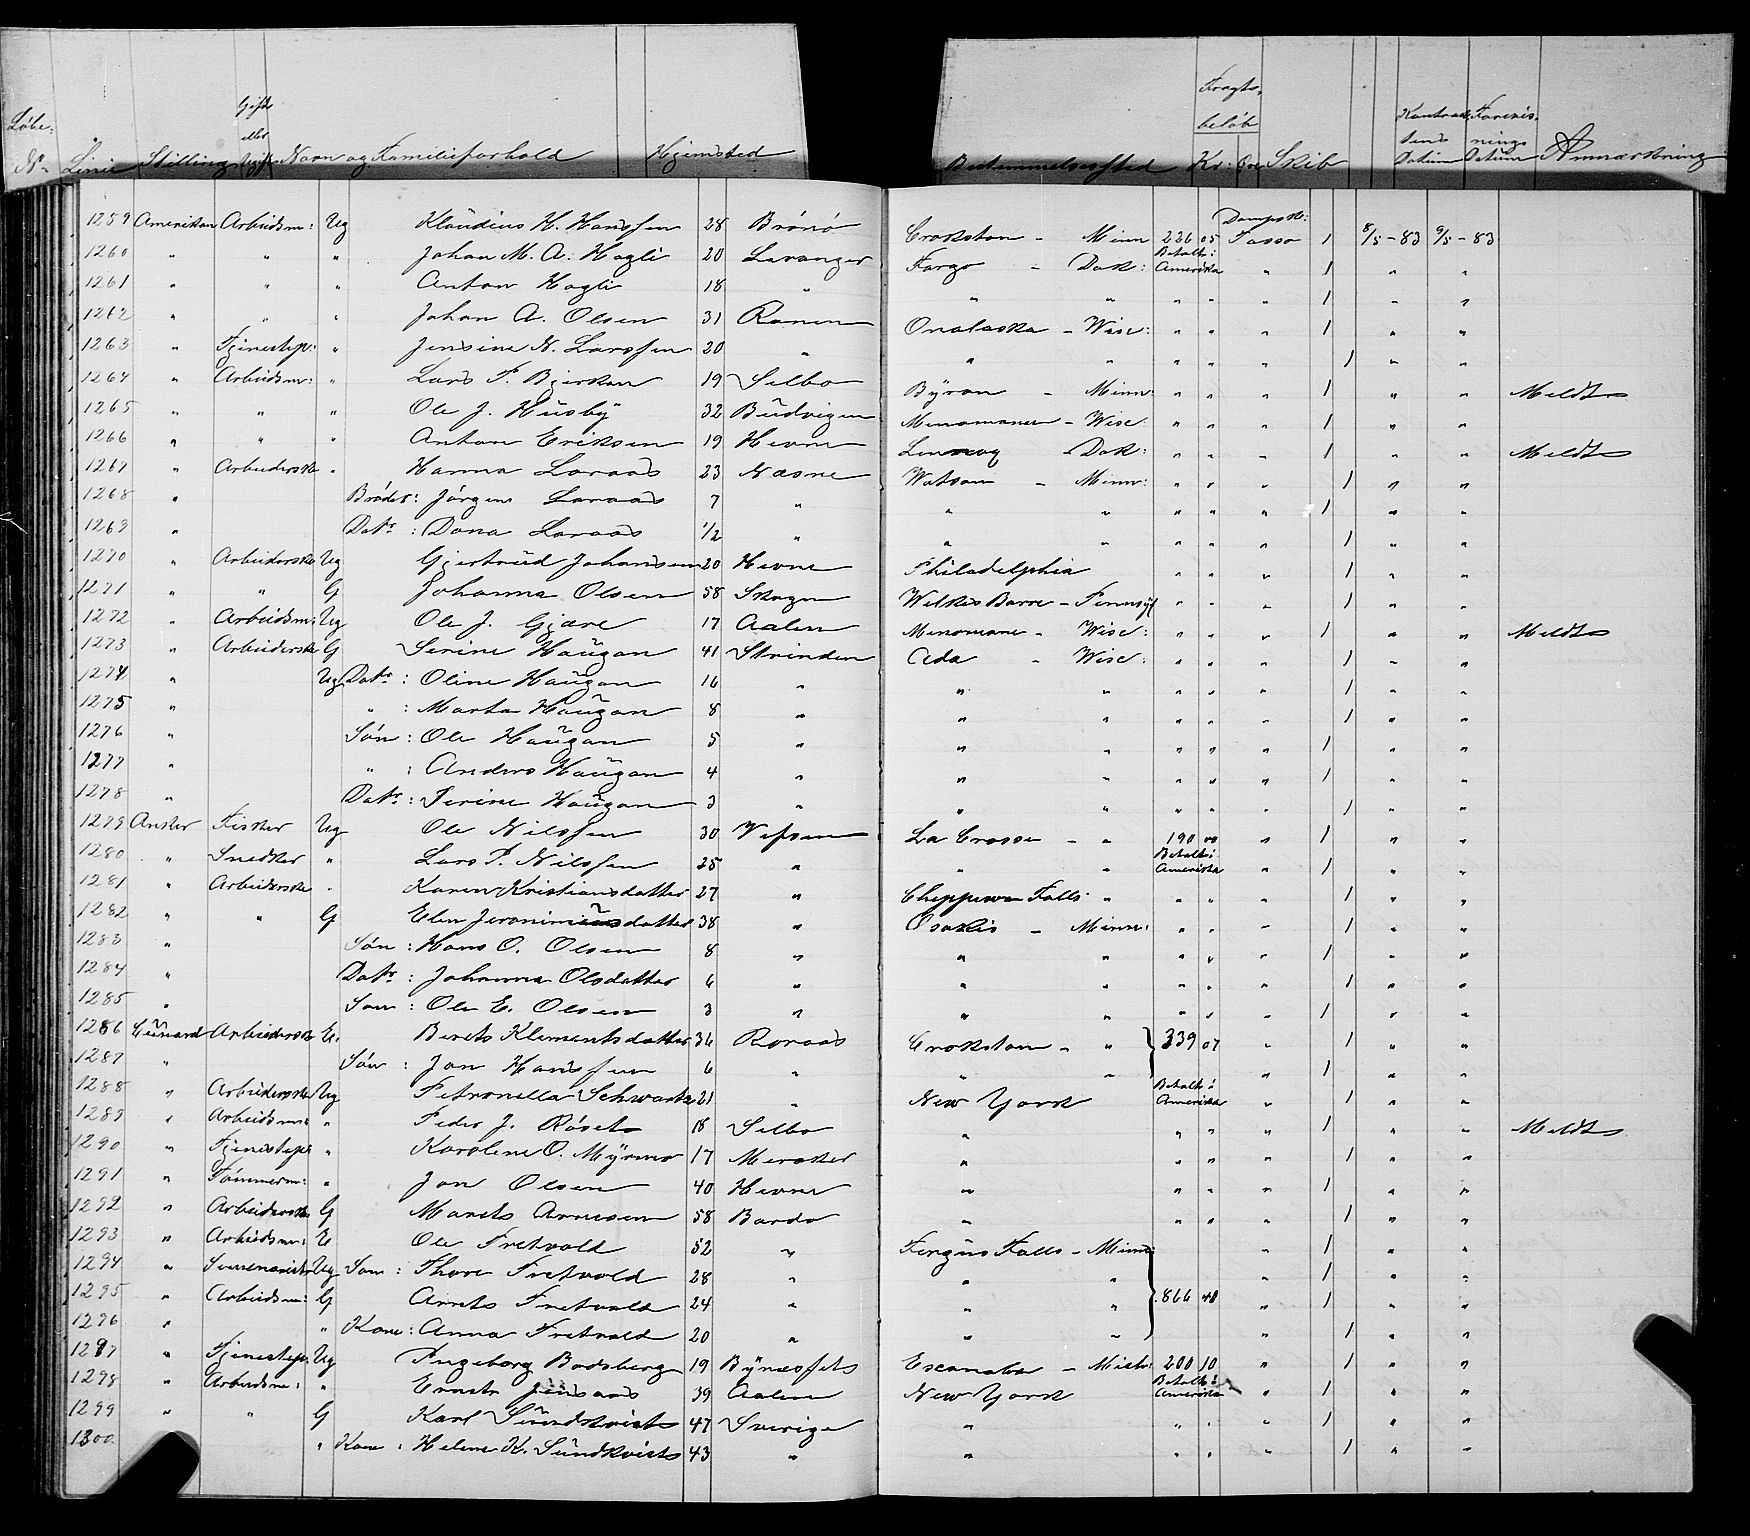 Løbe- Nr. Linie Stilling Gift eller Ugift Navn og Familieforhold Hjemsted Bestemmelsessted Fragtbeløb Kr: Øre Skib Kontraktens Datum Forevisnings Datum Anmærkning
1259 Amerikan Arbeidsm: Ug Klaudius H. Hanssen 28 Brønø Crokston - Minn 226 05 Dampsk: Tasso 1 8/5-83 9/5-83
1260 " " " Johan M. A. Hagli 20 Levanger Fargo - Dak: Betalt i Amerika " 1 " "
1261 " " " Anton Hagli 18 " " " " " " 1 " "
1262 " " " Johan A. Olsen 31 Ranen Onalaska - Wisc: " " " 1 " "
1263 " Tjenestep: " Jensine N. Larssen 20 " " " " " " 1 " "
1264 " Arbeidsm: " Lars P. Bjerkan 19 Selbo Byron - Minn: " " " 1 " " Meldt
1265 " " " Ole J. Husby 32 Budvigen Menomonee - Wisc: " " " 1 " "
1266 " " " Anton Eriksen 19 Hevne - Dak: " " " 1 " " Meldt
1267 " Arbeiderske " Hanna Laraas 23 Næsne Watson - Minn: " " " 1 " "
1268 " Brøder: Jørgen Laraas 7 " " " " " " 1 " "
1269 " Datr: Dona Laraas 1/2 " " " " " " 1 " "
1270 " Arbeiderske Ug Gjertrud Johansen 20 Hevne Philadelphia " " " 1 " "
1271 " " G Johanna Olsen 58 Skogn Wilkes Barre - Pennsyl " " " 1 " "
1272 " Arbeidsm: Ug Ole J. Gjære 17 Aalen Menomone - Wisc: " " " 1 " " Meldt
1273 " Arbeiderske G Serine Haugan 41 Strinden Ada - Wisc: " " " 1 " "
1274 " Ug Datr: Oline Haugan 16 " " " " " " 1 " "
1275 " " : Marta Haugan 8 " " " " " " 1 " "
1276 " Søn: Ole Haugan 5 " " " " " " 1 " "
1277 " " : Anders Haugan 4 " " " " " " 1 " "
1278 " Datr: Serine Haugan 3 " " " " " " 1 " "
1279 Anker Fisker Ug Ole Nilssen 30 Vefsen La Crosse - " 190 00 " 1 " "
1280 " Snedker " Lars P. Nilssen 25 " " " Betalt i Amerika " 1 " "
1281 " Arbeiderske " Karen Kristiansdatter 27 " Cheppewa Falls " " " " 1 " "
1282 " " G Elen Jeronimusdatter 38 " Osakis - Minn: " " " 1 " "
1283 " Søn: Hans O. Olsen 8 " " " " " " 1 " "
1284 " Datr: Johanna Olsdatter 6 " " " " " " 1 " "
1285 " Søn: Ole E. Olsen 3 " " " " " " 1 " "
1286 Cunard Arbeiderske E. Berets Klementsdatter 36 Roraas Crokston - " 339 07 " 1 " "
1287 " Søn: Jon Hanssen 6 " " " " 1 " "
1288 " Arbeiderske Ug Petronella Schwartz 21 " New York Betalt i Amerika " 1 " "
1289 " Arbeidsm: " Peder J. Røset 18 Selbo " " " " 1 " " Meldt
1290 " Tjenestepi " Karoline O. Myrmo 17 Meraker " " " " 1 " "
1291 " Tømmerm: " Jon Olsen 40 Hevne " " " " 1 " "
1292 " Arbeiderske G Marets Arnesen 58 Bardo " " " " 1 " "
1293 " Arbeidsm: E Ole Fretvold 52 " Fergus Falls - Minn: " 1 " "
1294 " Ug Søn: Thore Fretvold 28 " " " " 1 " "
1295 " Arbeidsm: G Arnts Fretvold 24 " " " 866 40 " 1 " "
1296 " " Kone: Anna Fretvold 20 " " " " 1 " "
1297 " Tjenestep: Ug Ingeborg Bodsberg 19 Bynæssets Escanaba - Mich: 200 10 " 1 " "
1298 " Arbeidsm: " Ernst Jensaas 39 Aalen New York Betalt i Amerika " 1 " "
1299 " " G Karl Sundkvist 47 Sverige " " " " 1 " "
1300 " Kone: Helena K. Sundkvist 43 " " " " " 1 " "